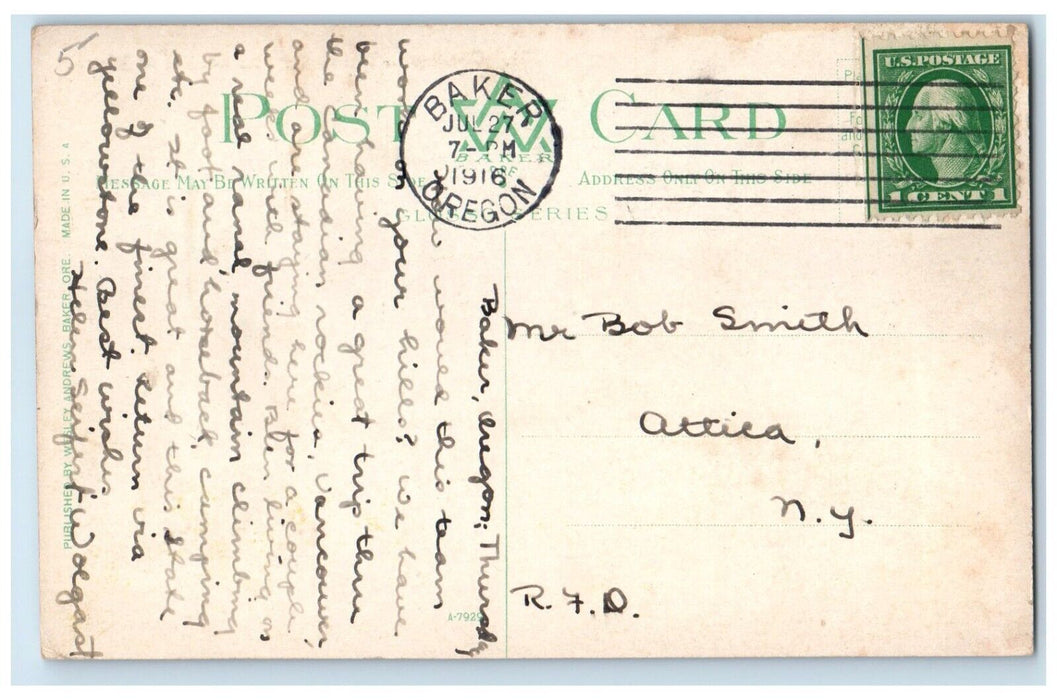 POST CARD
BAKER
ORE
MESSAGE MAY BE WRITTEN ON THIS SIDE
ADDRESS ONLY ON THIS SIDE
SERIES
BAKER
JUL 27
7-PM
1916
OREGON
U.S. POSTAGE
1 CENT 1
Mr Bob Smith
Attica,
N.Y.
R.F.D.
Baker, Oregon; Thursday
would this team
work your hills? We have
been having a great trip thru
the Canadian rockies, Vancouver
and are staying here for a couple
weeks with friends. Been living
a real ranch mountain climbing
by foot and horseback, camping
etc. It is great and this state
one of the finest. Return via
yellowstone. Best wishes
Helen Wolgast
5
A-7929
PUBLISHED BY WESLEY ANDREWS, BAKER, ORE. MADE IN U.S.A.